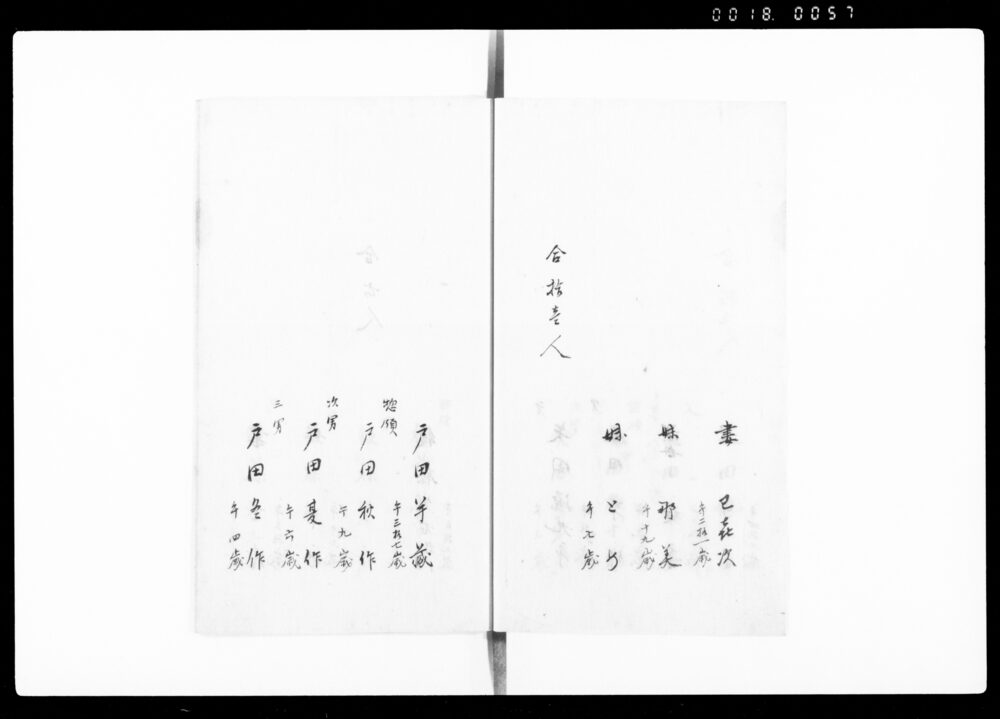 0018. 0057
妻 巳喜次
午二拾一歳
妹 那美
午十九歳
妹 と
午七歳
合拾壱人
戸田半蔵
午三拾七歳
惣領
戸田秋作
午九歳
次男
戸田夏作
午六歳
三男
戸田冬作
午四歳